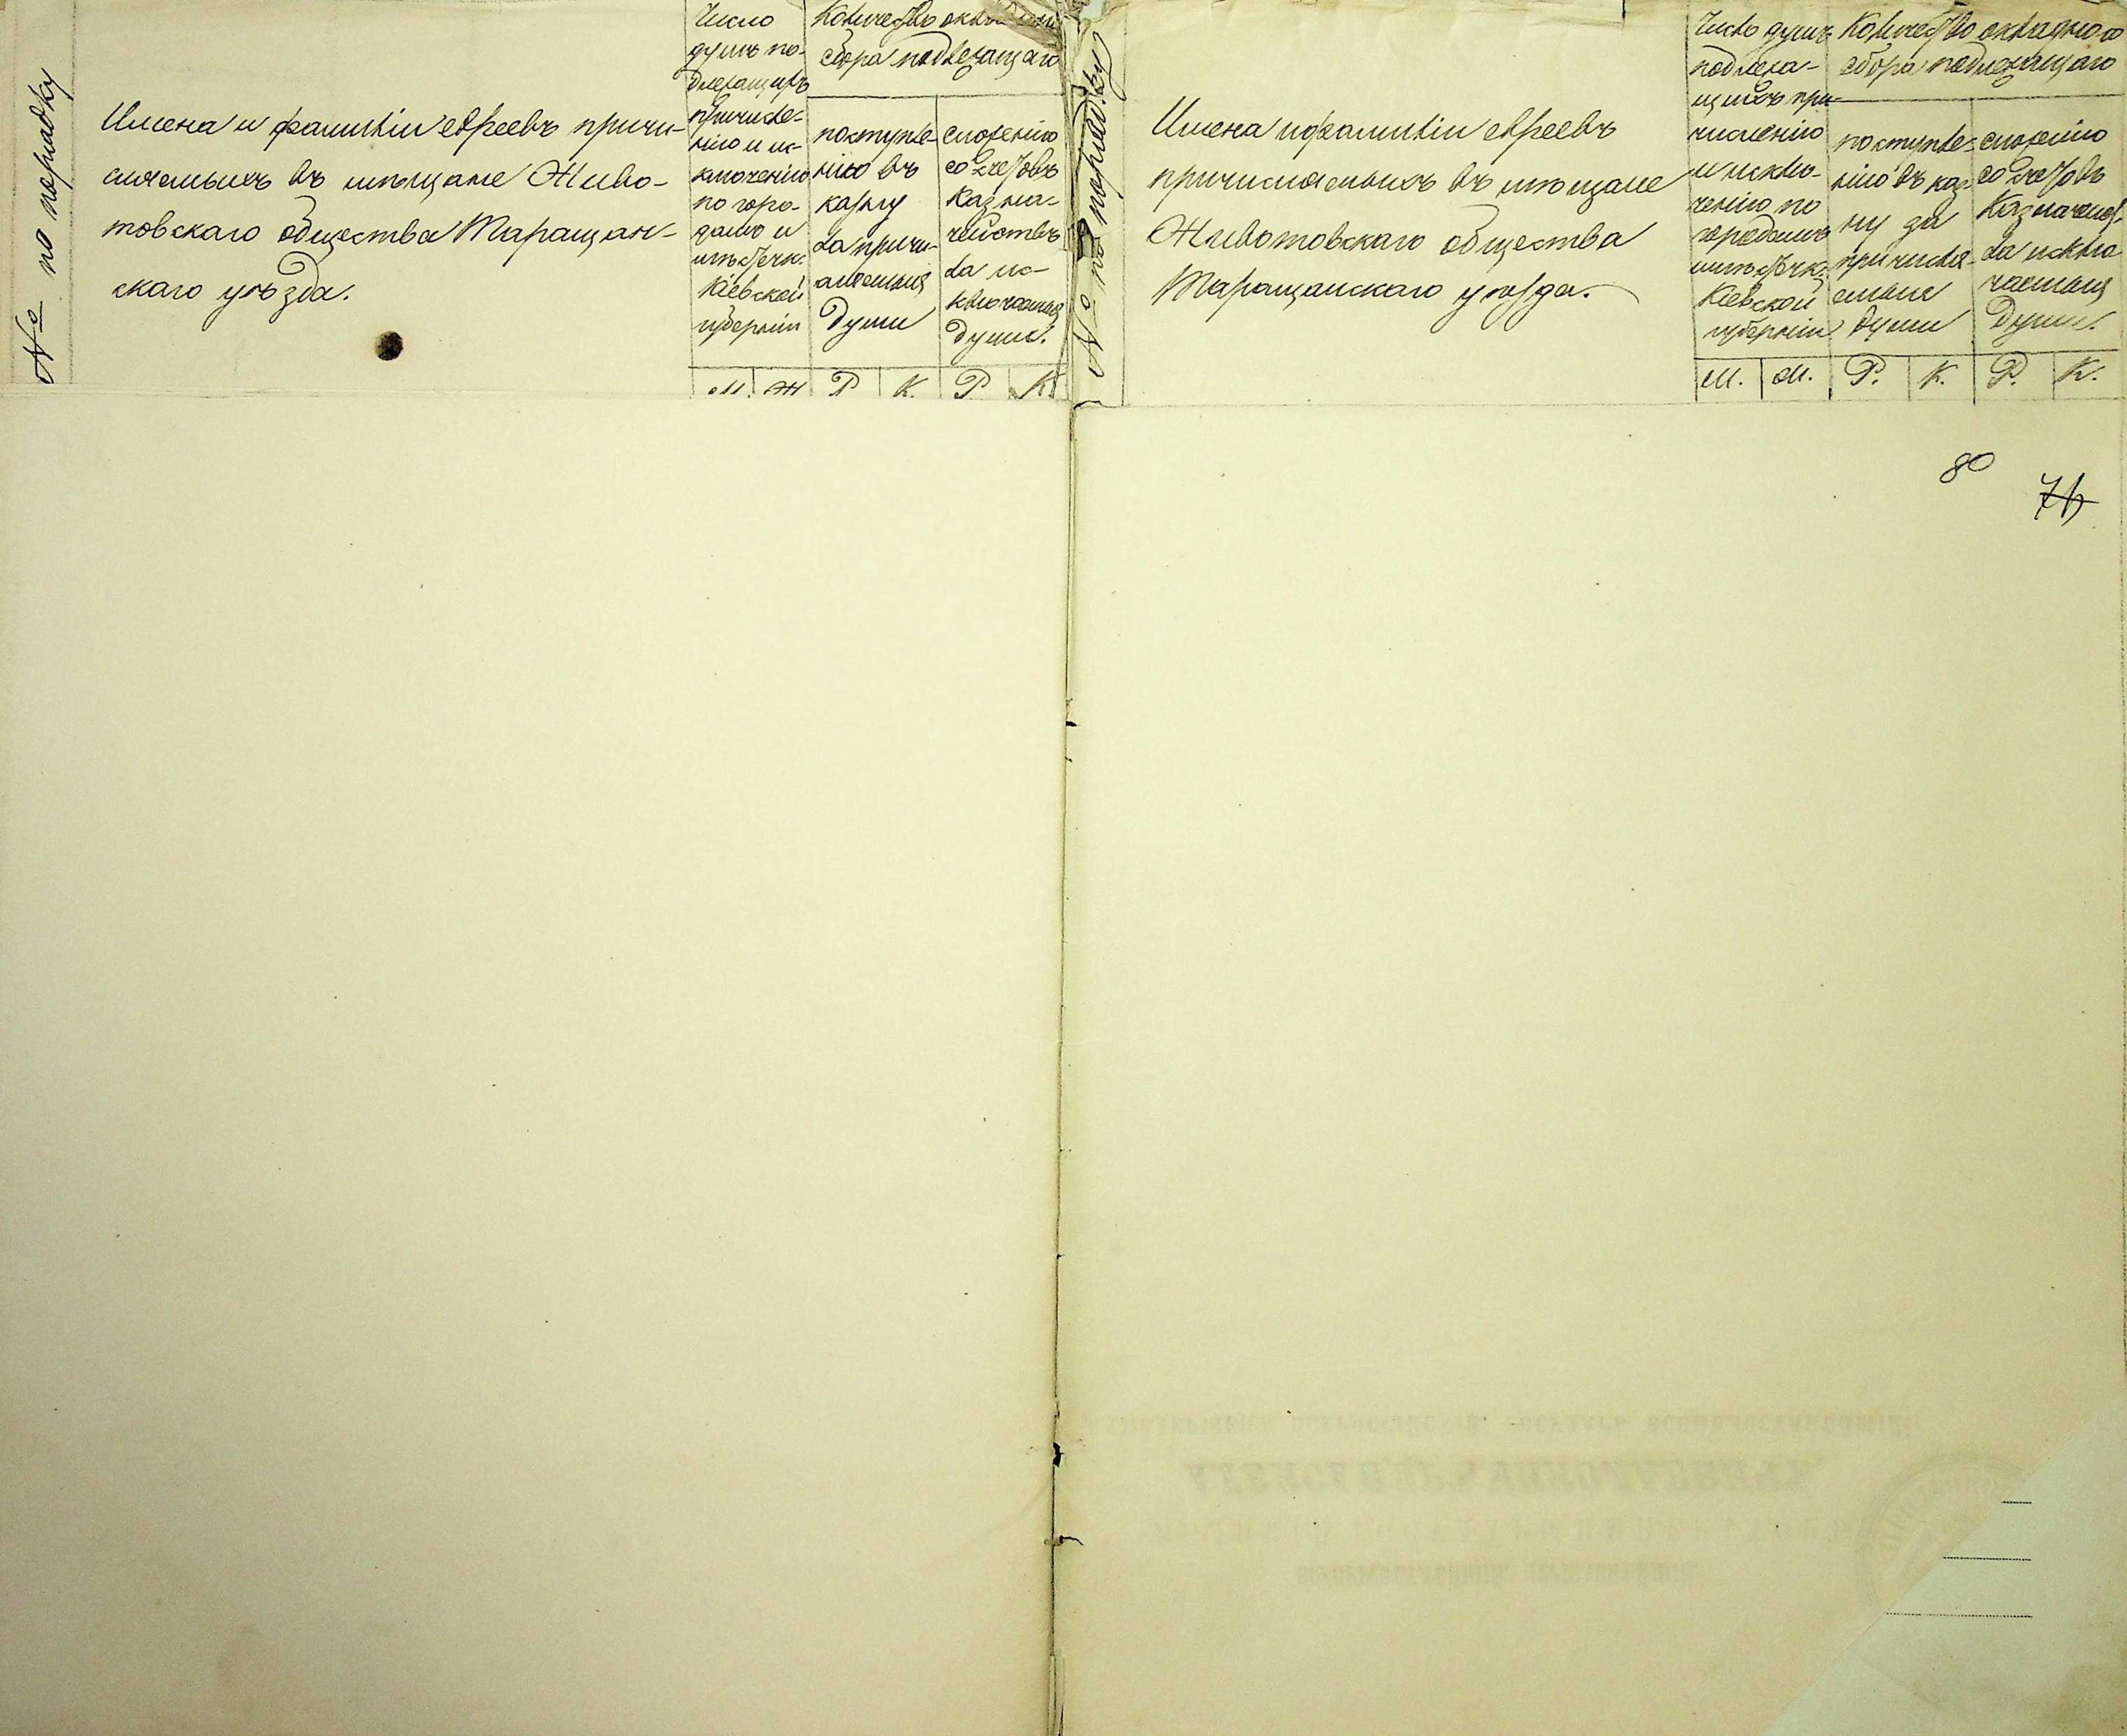 № по порядку
Имена и фамиліи евреевъ причи-
сляемыхъ въ мѣщане Живо-
товскаго общества Таращан-
скаго уѣзда.
Число
душъ по-
длежащихъ
причисле-
нію и ис-
ключенію
по горо-
дамъ и
мѣстечк.
Кіевской
губерніи
М. Ж
Количество
сбора подлежащаго
поступле-
нію въ
казну
за причи-
сляемыя
души
Р К.
сложенію
со счетовъ
Казна-
чействъ
за ис-
ключаемыя
души.
Р К
№ по порядку
Имена и фамиліи евреевъ
причисляемыхъ въ мѣщане
Животовскаго общества
Таращанскаго уѣзда.
Число душъ
подлежа-
щихъ при-
численію
и исклю-
ченію по
городамъ
мѣстечк.
Кіевской
губерніи
М. М.
Количество окладного
сбора подлежащаго
поступле-
нію въ каз-
ну за
причисля-
емыя
души
Р. К.
сложенію
со счетовъ
Казначейст.
за исклю
чаемыя
души.
Р. К.
80